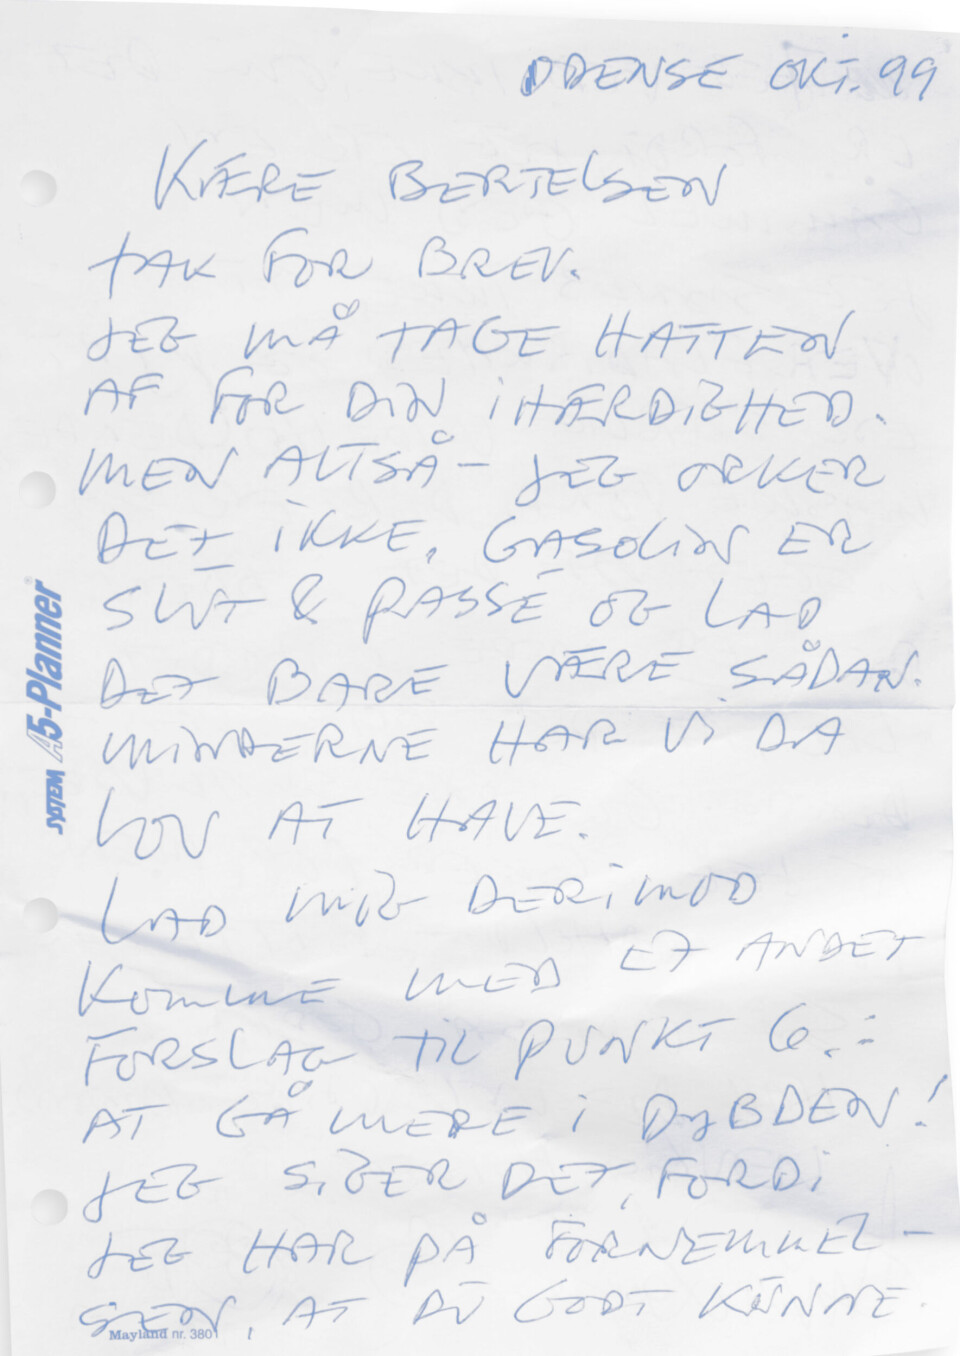 ODENSE OKT. 99
KÆRE BERTELSEN
TAK FOR BREV.
JEG MÅ TAGE HATTEN
AF FOR DIN IHÆRDIGHED.
MEN ALTSÅ – JEG ORKER
DET IKKE. GASOLIN ER
SLUT & PASSÉ OG LAD
DET BARE VÆRE SÅDAN.
MINDERNE HAR VI DA
LOV AT HAVE.
LAD MIG DERIMOD
KOMME MED ET ANDET
FORSLAG TIL PUNKT 6.:
AT GÅ MERE I DYBDEN!
JEG SIGER DET, FORDI
JEG HAR PÅ FORNEMMEL-
SEN, AT DU GODT KUNNE.
SYSTEM A5-Planner®
Mayland nr. 3801